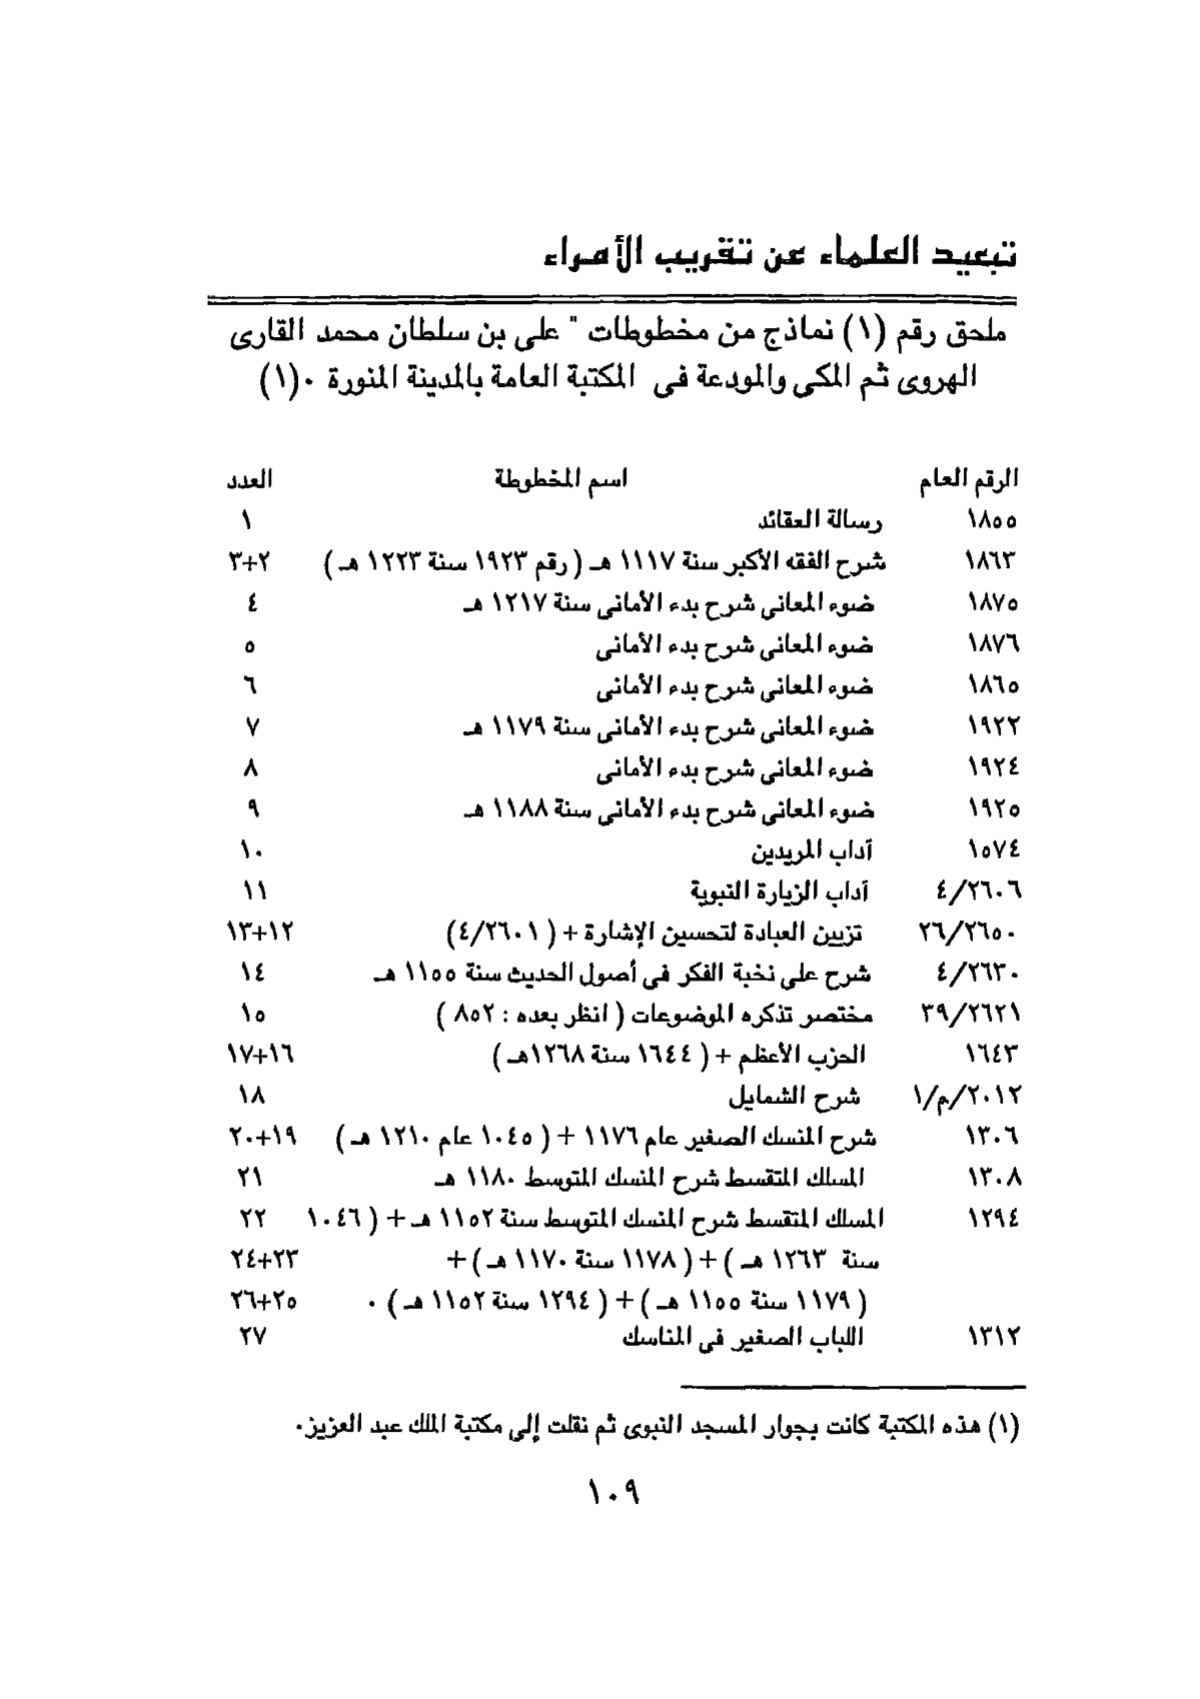 تبعيد العلماء عن تقريب الأمراء
ملحق رقم (١) نماذج من مخطوطات " على بن سلطان محمد القارى
الهروى ثم المكى والمودعة فى المكتبة العامة بالمدينة المنورة ٠(١)
الرقم العام اسم المخطوطة العدد
١٨٥٥ رسالة العقائد ١
١٨٦٣ شرح الفقه الأكبر سنة ١١١٧ هـ ( رقم ١٩٢٣ سنة ١٢٢٣ هـ ) ٢+٣
١٨٧٥ ضوء المعانى شرح بدء الأمانى سنة ١٢١٧ هـ ٤
١٨٧٦ ضوء المعانى شرح بدء الأمانى ٥
١٨٦٥ ضوء المعانى شرح بدء الأمانى ٦
١٩٢٢ ضوء المعانى شرح بدء الأمانى سنة ١١٧٩ هـ ٧
١٩٢٤ ضوء المعانى شرح بدء الأمانى ٨
١٩٢٥ ضوء المعانى شرح بدء الأمانى سنة ١١٨٨ هـ ٩
١٥٧٤ آداب المريدين ١٠
٤/٢٦٠٦ آداب الزيارة النبوية ١١
٢٦/٢٦٥٠ تزيين العبادة لتحسين الإشارة + ( ٤/٢٦٠١) ١٢+١٣
٤/٢٦٣٠ شرح على نخبة الفكر فى أصول الحديث سنة ١١٥٥ هـ ١٤
٣٩/٢٦٢١ مختصر تذكره الموضوعات ( انظر بعده : ٨٥٢ ) ١٥
١٦٤٣ الحزب الأعظم + ( ١٦٤٤ سنة ١٢٦٨هـ ) ١٦+١٧
٢٠١٢/م/١ شرح الشمايل ١٨
١٣٠٦ شرح المنسك الصغير عام ١١٧٦ + ( ١٠٤٥ عام ١٢١٠ هـ ) ١٩+٢٠
١٣٠٨ المسلك المتقسط شرح المنسك المتوسط ١١٨٠ هـ ٢١
١٢٩٤ المسلك المتقسط شرح المنسك المتوسط سنة ١١٥٢ هـ + ( ١٠٤٦ ٢٢
سنة ١٢٦٣ هـ ) + ( ١١٧٨ سنة ١١٧٠ هـ ) + ٢٣+٢٤
( ١١٧٩ سنة ١١٥٥ هـ ) + ( ١٢٩٤ سنة ١١٥٢ هـ ) ٠ ٢٥+٢٦
١٣١٢ اللباب الصغير فى المناسك ٢٧
(١) هذه المكتبة كانت بجوار المسجد النبوى ثم نقلت إلى مكتبة الملك عبد العزيز٠
١٠٩